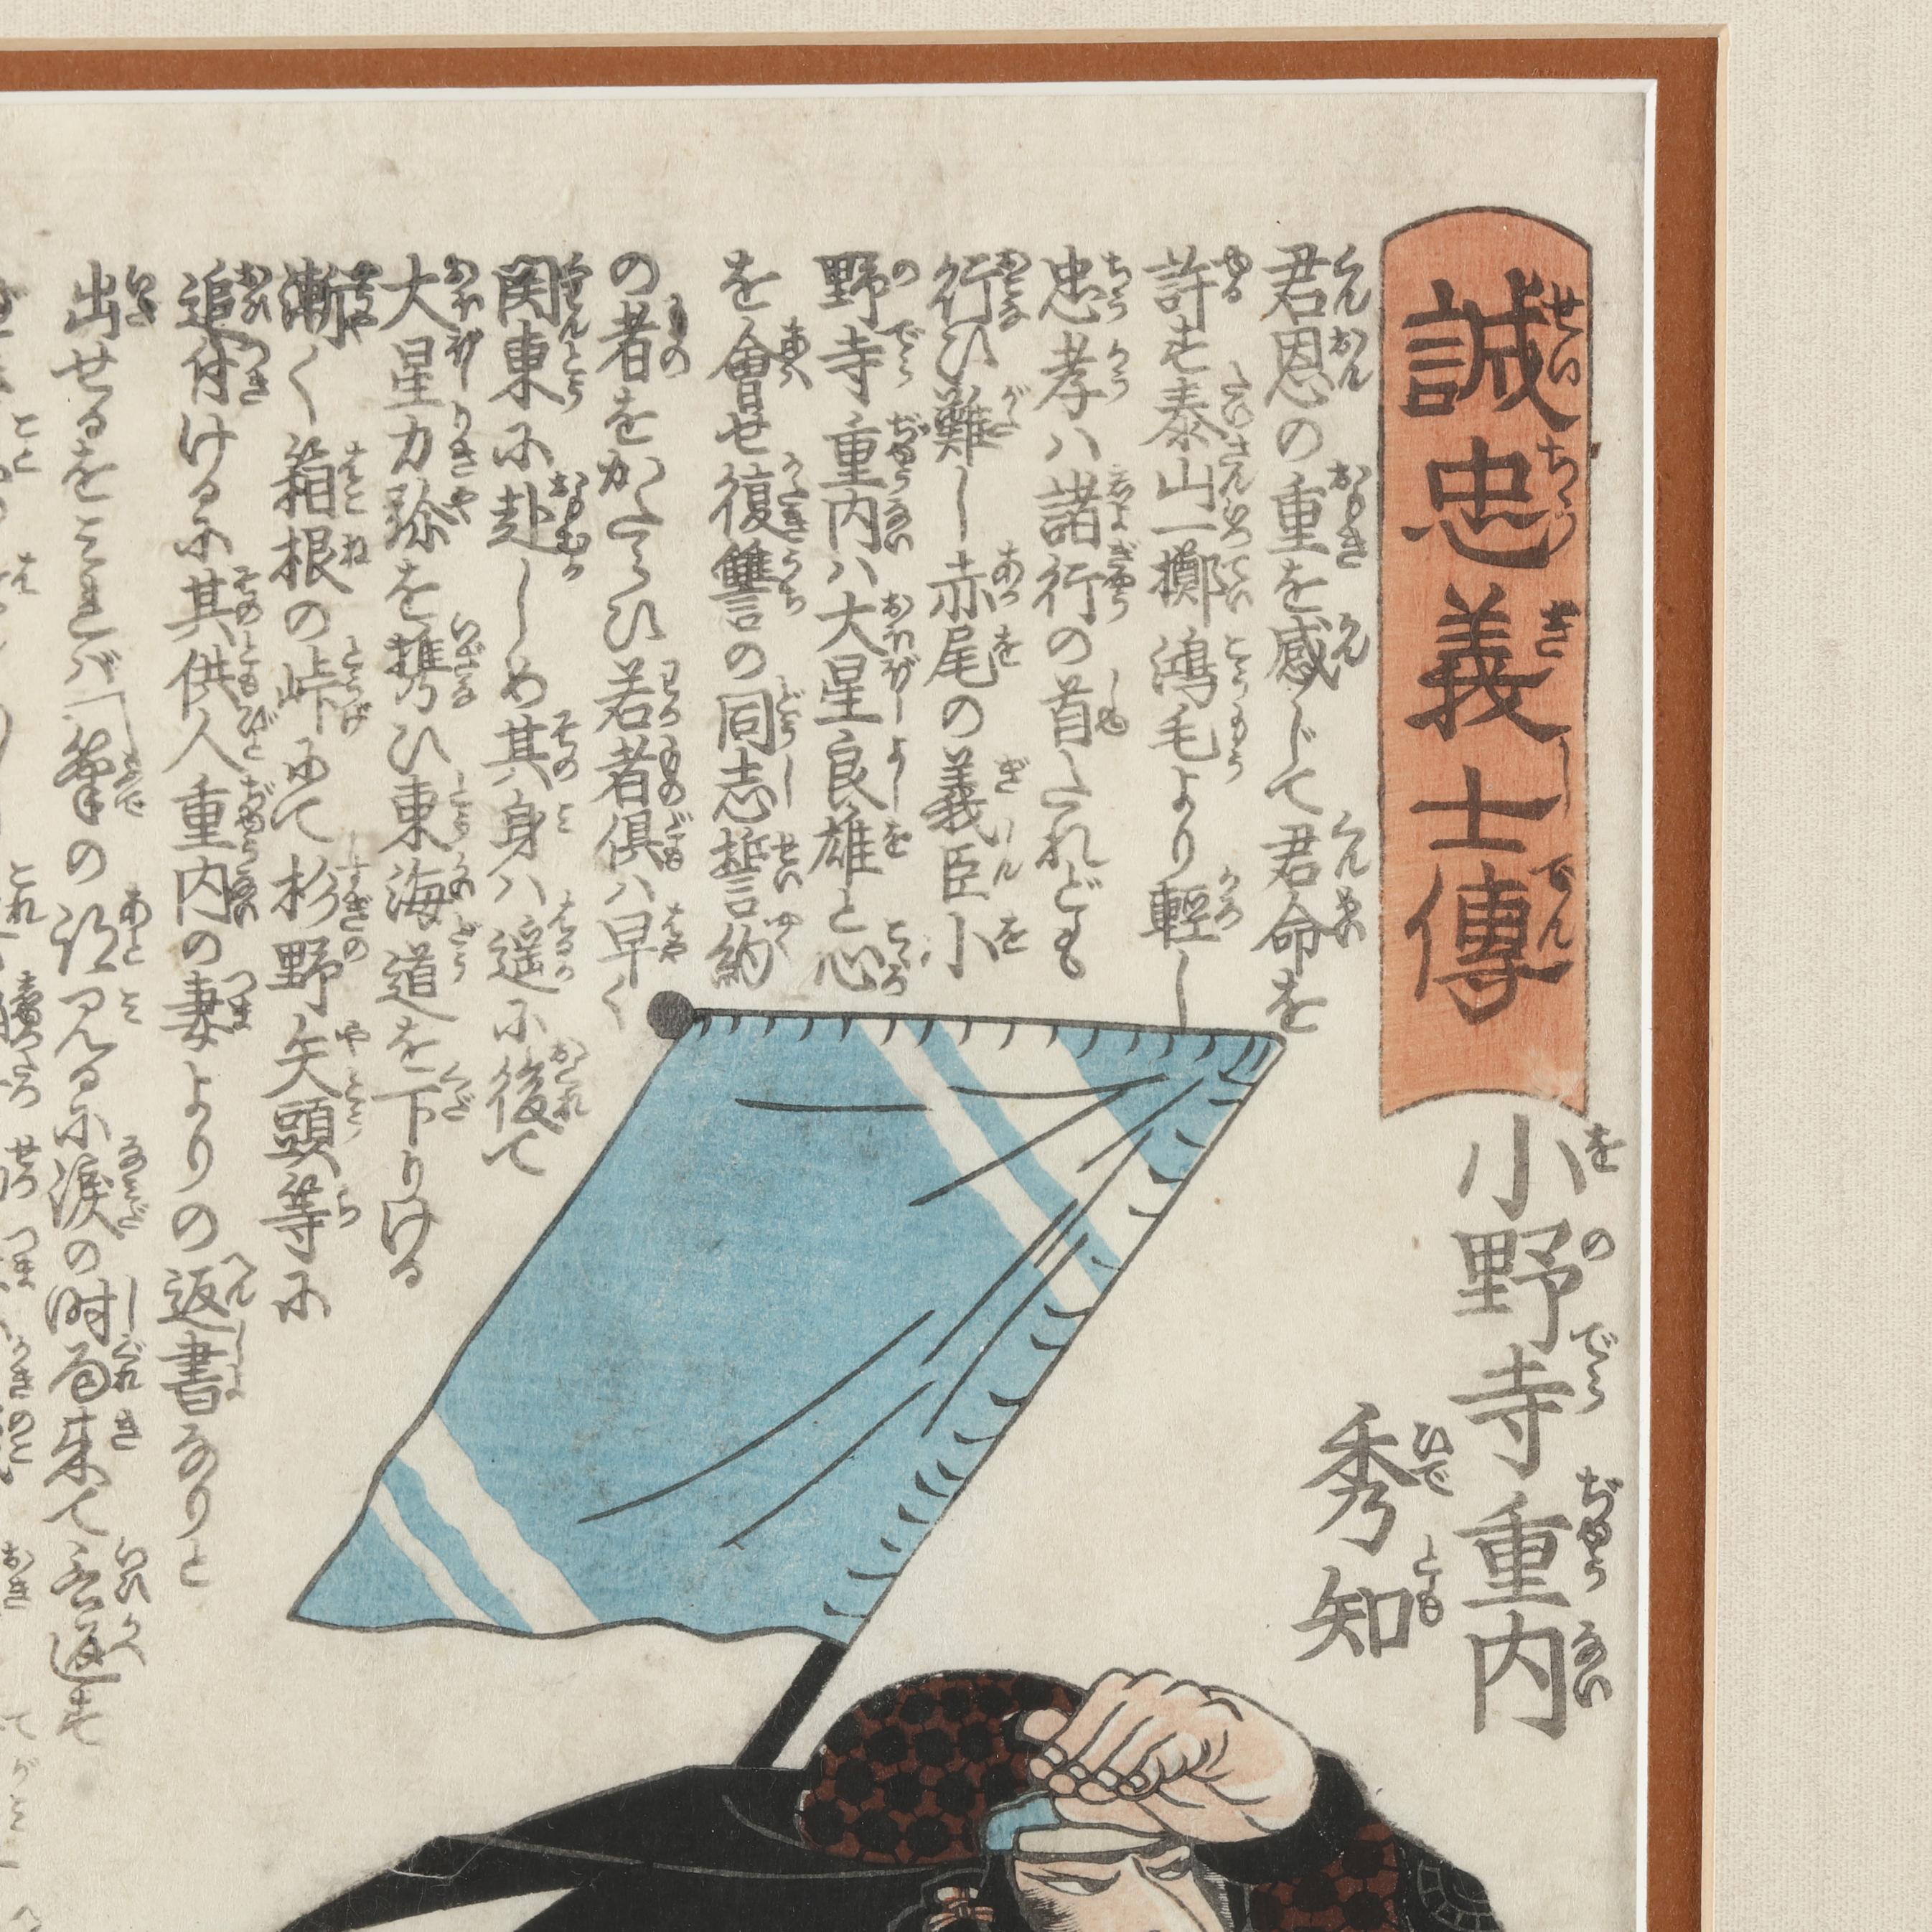 誠忠義士傳
小野寺重内
秀知
君恩の重を感じて君命を
許を泰山一擲鴻毛より輕し
忠孝ハ諸行の首たれども
行ひ難し赤尾の義臣小
野寺重内ハ大星良雄と心
を會せ復讐の同志誓約
の者をかたらひ若者倶ハ早く
関東に赴しめ其身ハ遥に後て
大星力弥を携ひ東海道を下りける
漸く箱根の峠にて杉野矢頭等に
追付けるに其供人重内の妻よりの返書なりと
出せるをこれバ「筆の跡みるに涙の時雨来て言返す